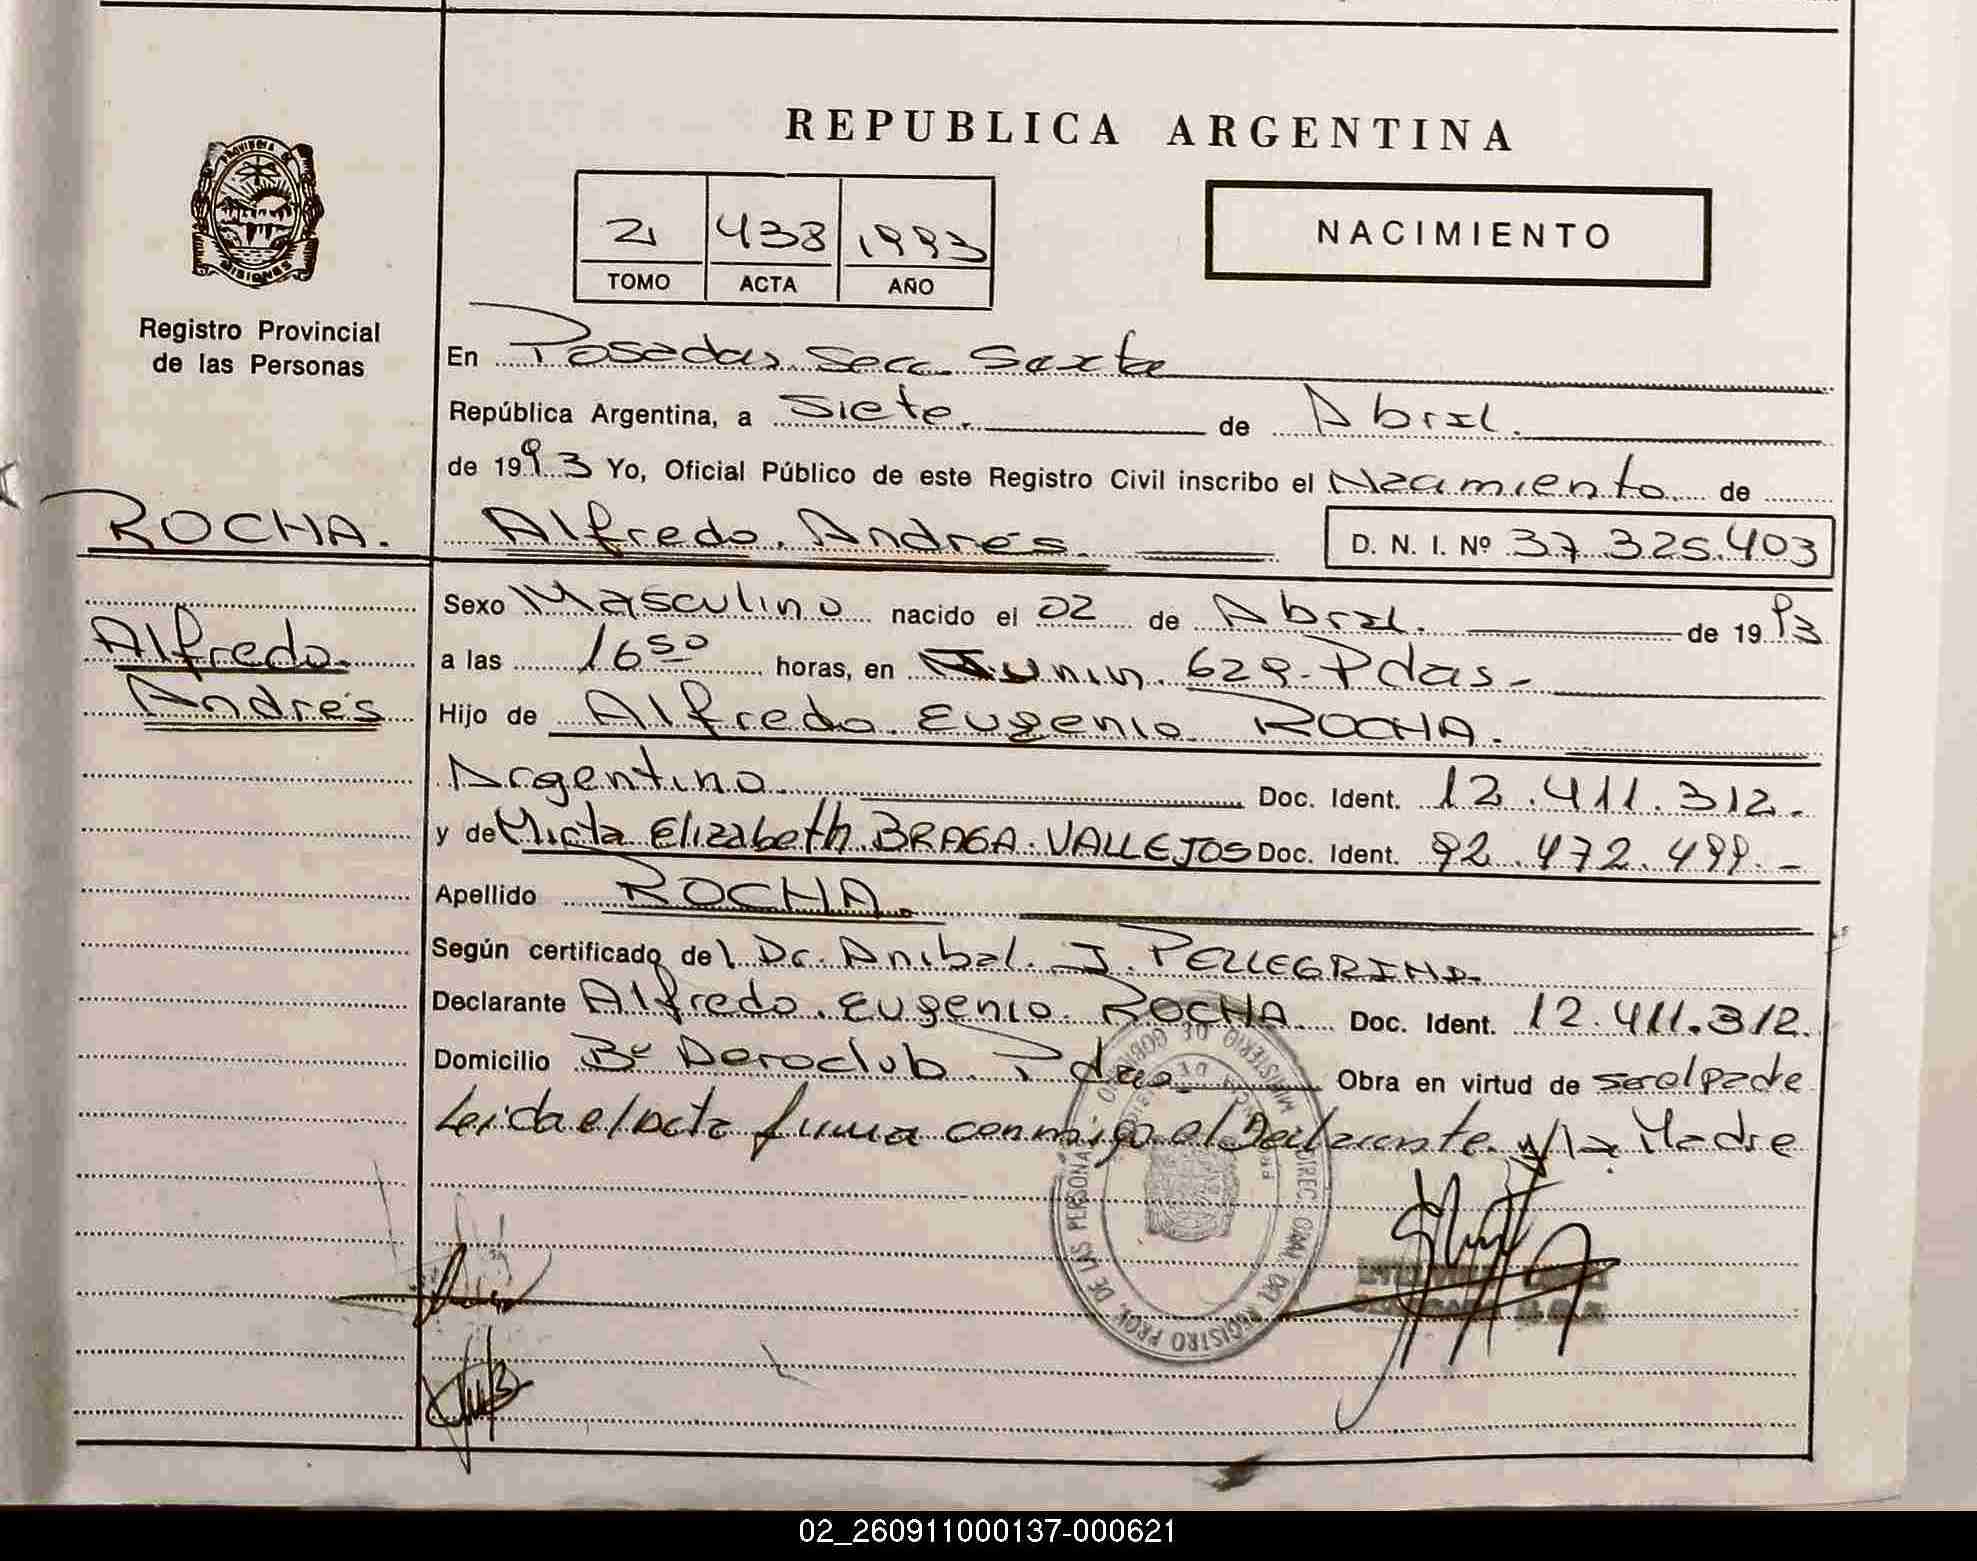 REPUBLICA ARGENTINA
PROVINCIA DE
MISIONES
Registro Provincial
de las Personas
2 438 1993
TOMO ACTA AÑO
NACIMIENTO
En Posadas Secc. Sexta
República Argentina, a Siete. de Abril.
de 1993 Yo, Oficial Público de este Registro Civil inscribo el Nacimiento de
ROCHA. Alfredo Andrés. D. N. I. Nº 37.325.403
Sexo Masculino nacido el 02 de Abril. de 1993
Alfredo a las 16 50 horas, en Junin 629 - Pdas -
Andrés Hijo de Alfredo Eugenio ROCHA.
Argentino. Doc. Ident. 12.411.312.-
y de Mirta Elizabeth BRAGA VALLEJOS Doc. Ident. 92.472.499.-
Apellido ROCHA.
Según certificado del Dr. Anibal J. PELLEGRINA
Declarante Alfredo Eugenio ROCHA Doc. Ident. 12.411.312.
Domicilio Bº Aeroclub Pdas Obra en virtud de ser el padre
Leida el acta firma conmigo el Declarante y la Madre
MINISTERIO DE GOBIERNO
DIREC. GRAL. DEL REGISTRO PROV. DE LAS PERSONAS
02_260911000137-000621